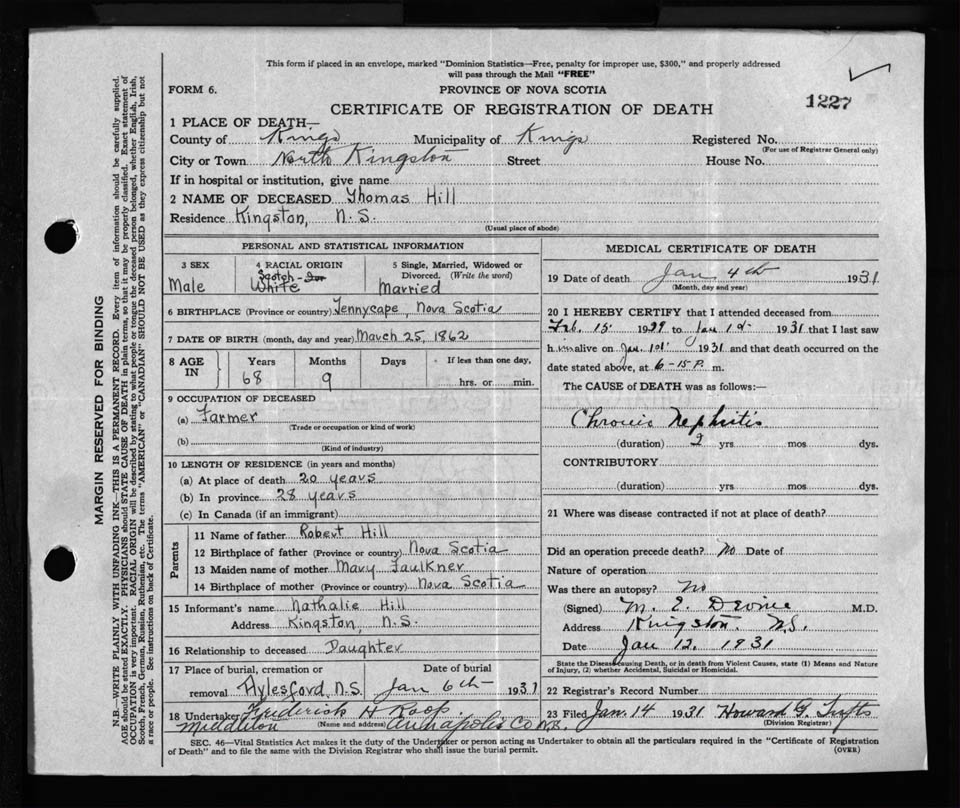 This form if placed in an envelope, marked "Dominion Statistics—Free, penalty for improper use, $300," and properly addressed
will pass through the Mail "FREE"
FORM 6.
PROVINCE OF NOVA SCOTIA
1227
CERTIFICATE OF REGISTRATION OF DEATH
1 PLACE OF DEATH—
County of Kings Municipality of Kings Registered No.
(For use of Registrar General only)
City or Town North Kingston Street House No.
If in hospital or institution, give name
2 NAME OF DECEASED Thomas Hill
Residence Kingston, N.S.
(Usual place of abode)
PERSONAL AND STATISTICAL INFORMATION
3 SEX 4 RACIAL ORIGIN 5 Single, Married, Widowed or
Divorced. (Write the word)
Scotch-
Male White Married
6 BIRTHPLACE (Province or country) Tennycape, Nova Scotia
7 DATE OF BIRTH (month, day and year) March 25, 1862
8 AGE IN Years Months Days If less than one day,
68 9 hrs. or min.
9 OCCUPATION OF DECEASED
(a) Farmer
(Trade or occupation or kind of work)
(b)
(Kind of industry)
10 LENGTH OF RESIDENCE (in years and months)
(a) At place of death 20 years
(b) In province 28 years
(c) In Canada (if an immigrant)
Parents
11 Name of father Robert Hill
12 Birthplace of father (Province or country) Nova Scotia
13 Maiden name of mother Mary Faulkner
14 Birthplace of mother (Province or country) Nova Scotia
15 Informant's name Nathalie Hill
Address Kingston, N.S.
16 Relationship to deceased Daughter
17 Place of burial, cremation or Date of burial
removal Aylesford, N.S. Jan 6th 1931
18 Undertaker Frederick H Roop
(Name and address)
Middleton Annapolis Co N.S.
MEDICAL CERTIFICATE OF DEATH
19 Date of death Jan 4th 1931
(Month, day and year)
20 I HEREBY CERTIFY that I attended deceased from
Feb. 15 1929 to Jan 1st 1931 that I last saw
him alive on Jan. 1st 1931 and that death occurred on the
date stated above, at 6-15 P. m.
The CAUSE of DEATH was as follows:—
Chronic Nephritis
(duration) 2 yrs mos dys.
CONTRIBUTORY
(duration) yrs. mos. dys.
21 Where was disease contracted if not at place of death?
Did an operation precede death? No Date of
Nature of operation
Was there an autopsy? No
(Signed) M. E. Devine M.D.
Address Kingston N.S.
Date Jan 12. 1931
State the Disease causing Death, or in death from Violent Causes, state (1) Means and Nature
of Injury, (2) whether Accidental, Suicidal or Homicidal.
22 Registrar's Record Number
23 Filed Jan. 14 1931 Howard G. Tufts
(Division Registrar)
SEC. 46—Vital Statistics Act makes it the duty of the Undertaker or person acting as Undertaker to obtain all the particulars required in the "Certificate of Registration
of Death" and to file the same with the Division Registrar who shall issue the burial permit.
(OVER)
MARGIN RESERVED FOR BINDING
N.B.—WRITE PLAINLY WITH UNFADING INK—THIS IS A PERMANENT RECORD. Every item of information should be carefully supplied.
AGE should be stated EXACTLY. PHYSICIANS should STATE CAUSE OF DEATH in plain terms, so that it may be properly classified. Exact statement of
OCCUPATION is very important. RACIAL ORIGIN will be described by stating to what people or tongue the deceased person belonged, whether English, Irish,
Scotch, French, German, Russian, Ruthenian, etc. The terms "AMERICAN" or "CANADIAN" SHOULD NOT BE USED as they express citizenship but not
a race or people. See instructions on back of Certificate.